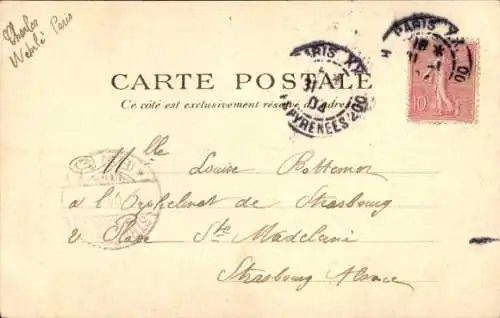 Charles
Wehlé Paris
CARTE POSTALE
Ce côté est exclusivement réservé à l'adresse
PARIS XX
04
PYRENEES 200
PARIS XX
10
Mlle Louise Bottemer
a l'Orphelinat de Strasbourg
2 Place Ste Madeleine
Strasbourg Alsace